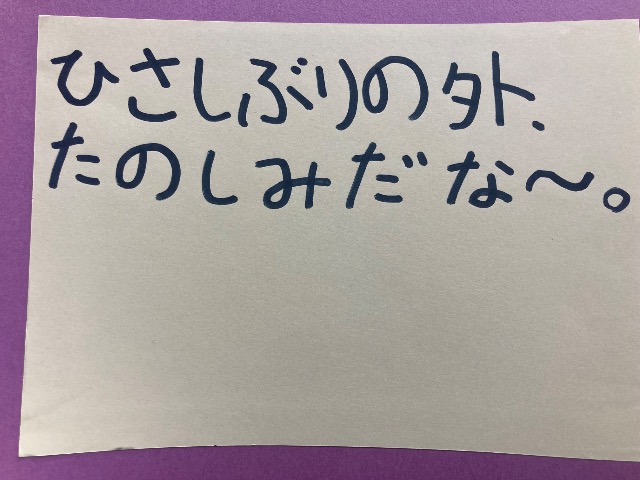 ひさしぶりの外、
たのしみだな〜。